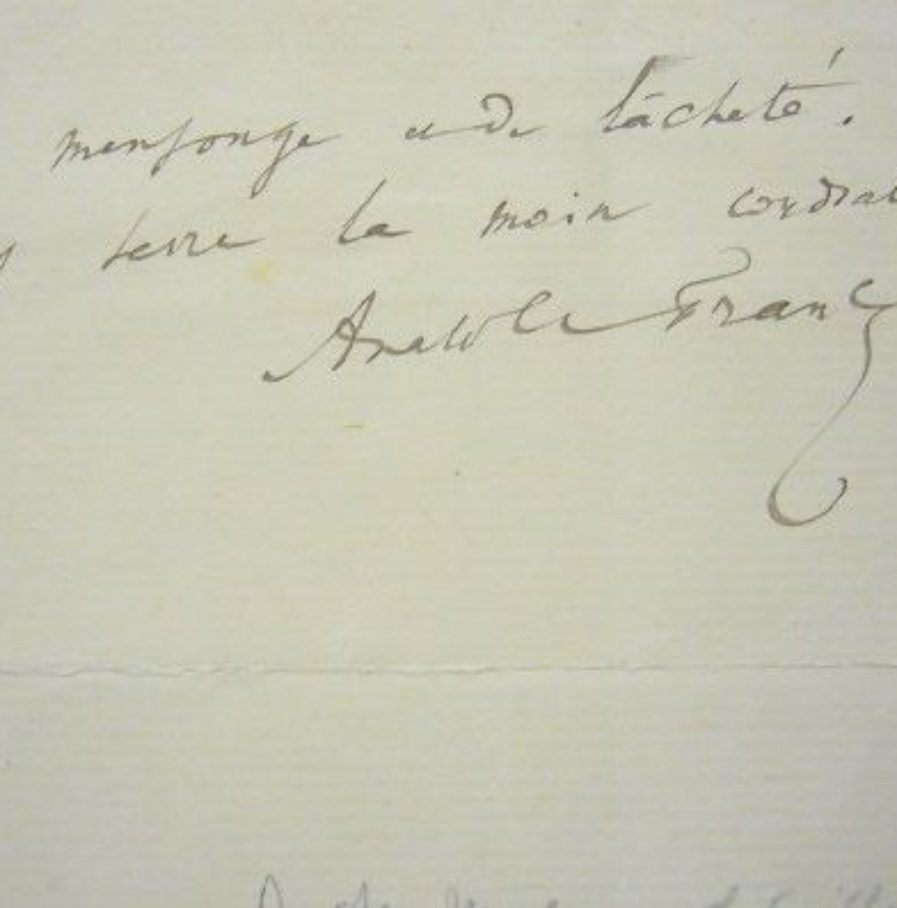 mensonge et de lâcheté.
serre la main cordial
Anatole Franc